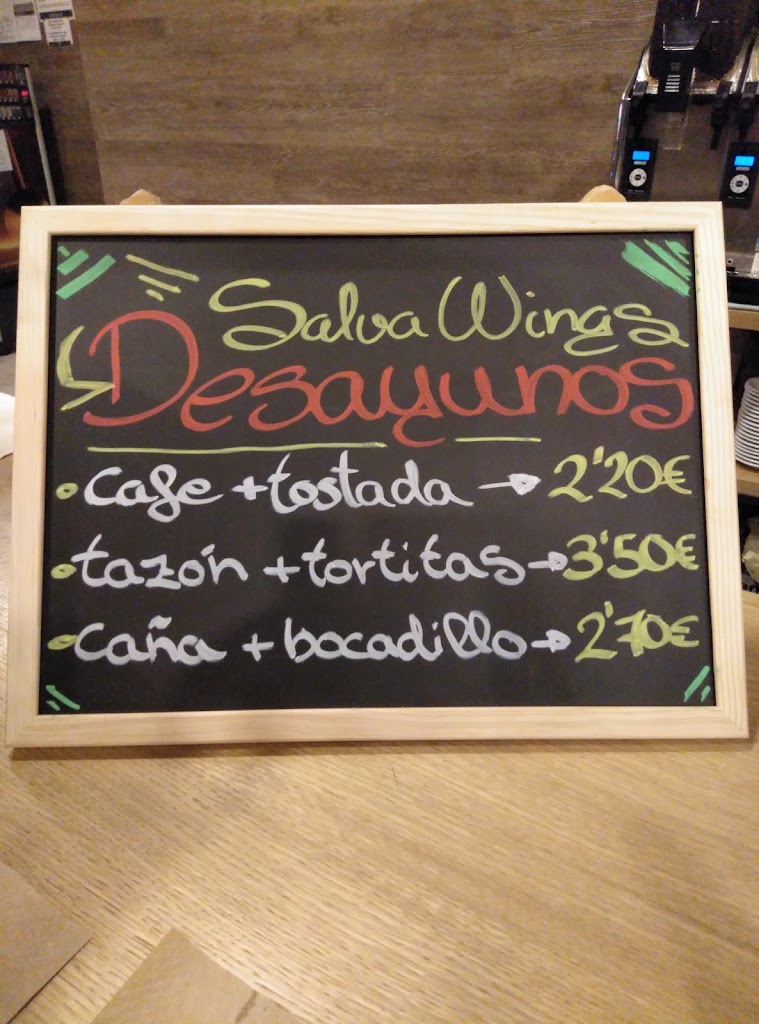 Salva Wings
Desayunos
cafe + tostada → 2'20€
tazón + tortitas → 3'50€
caña + bocadillo → 2'70€